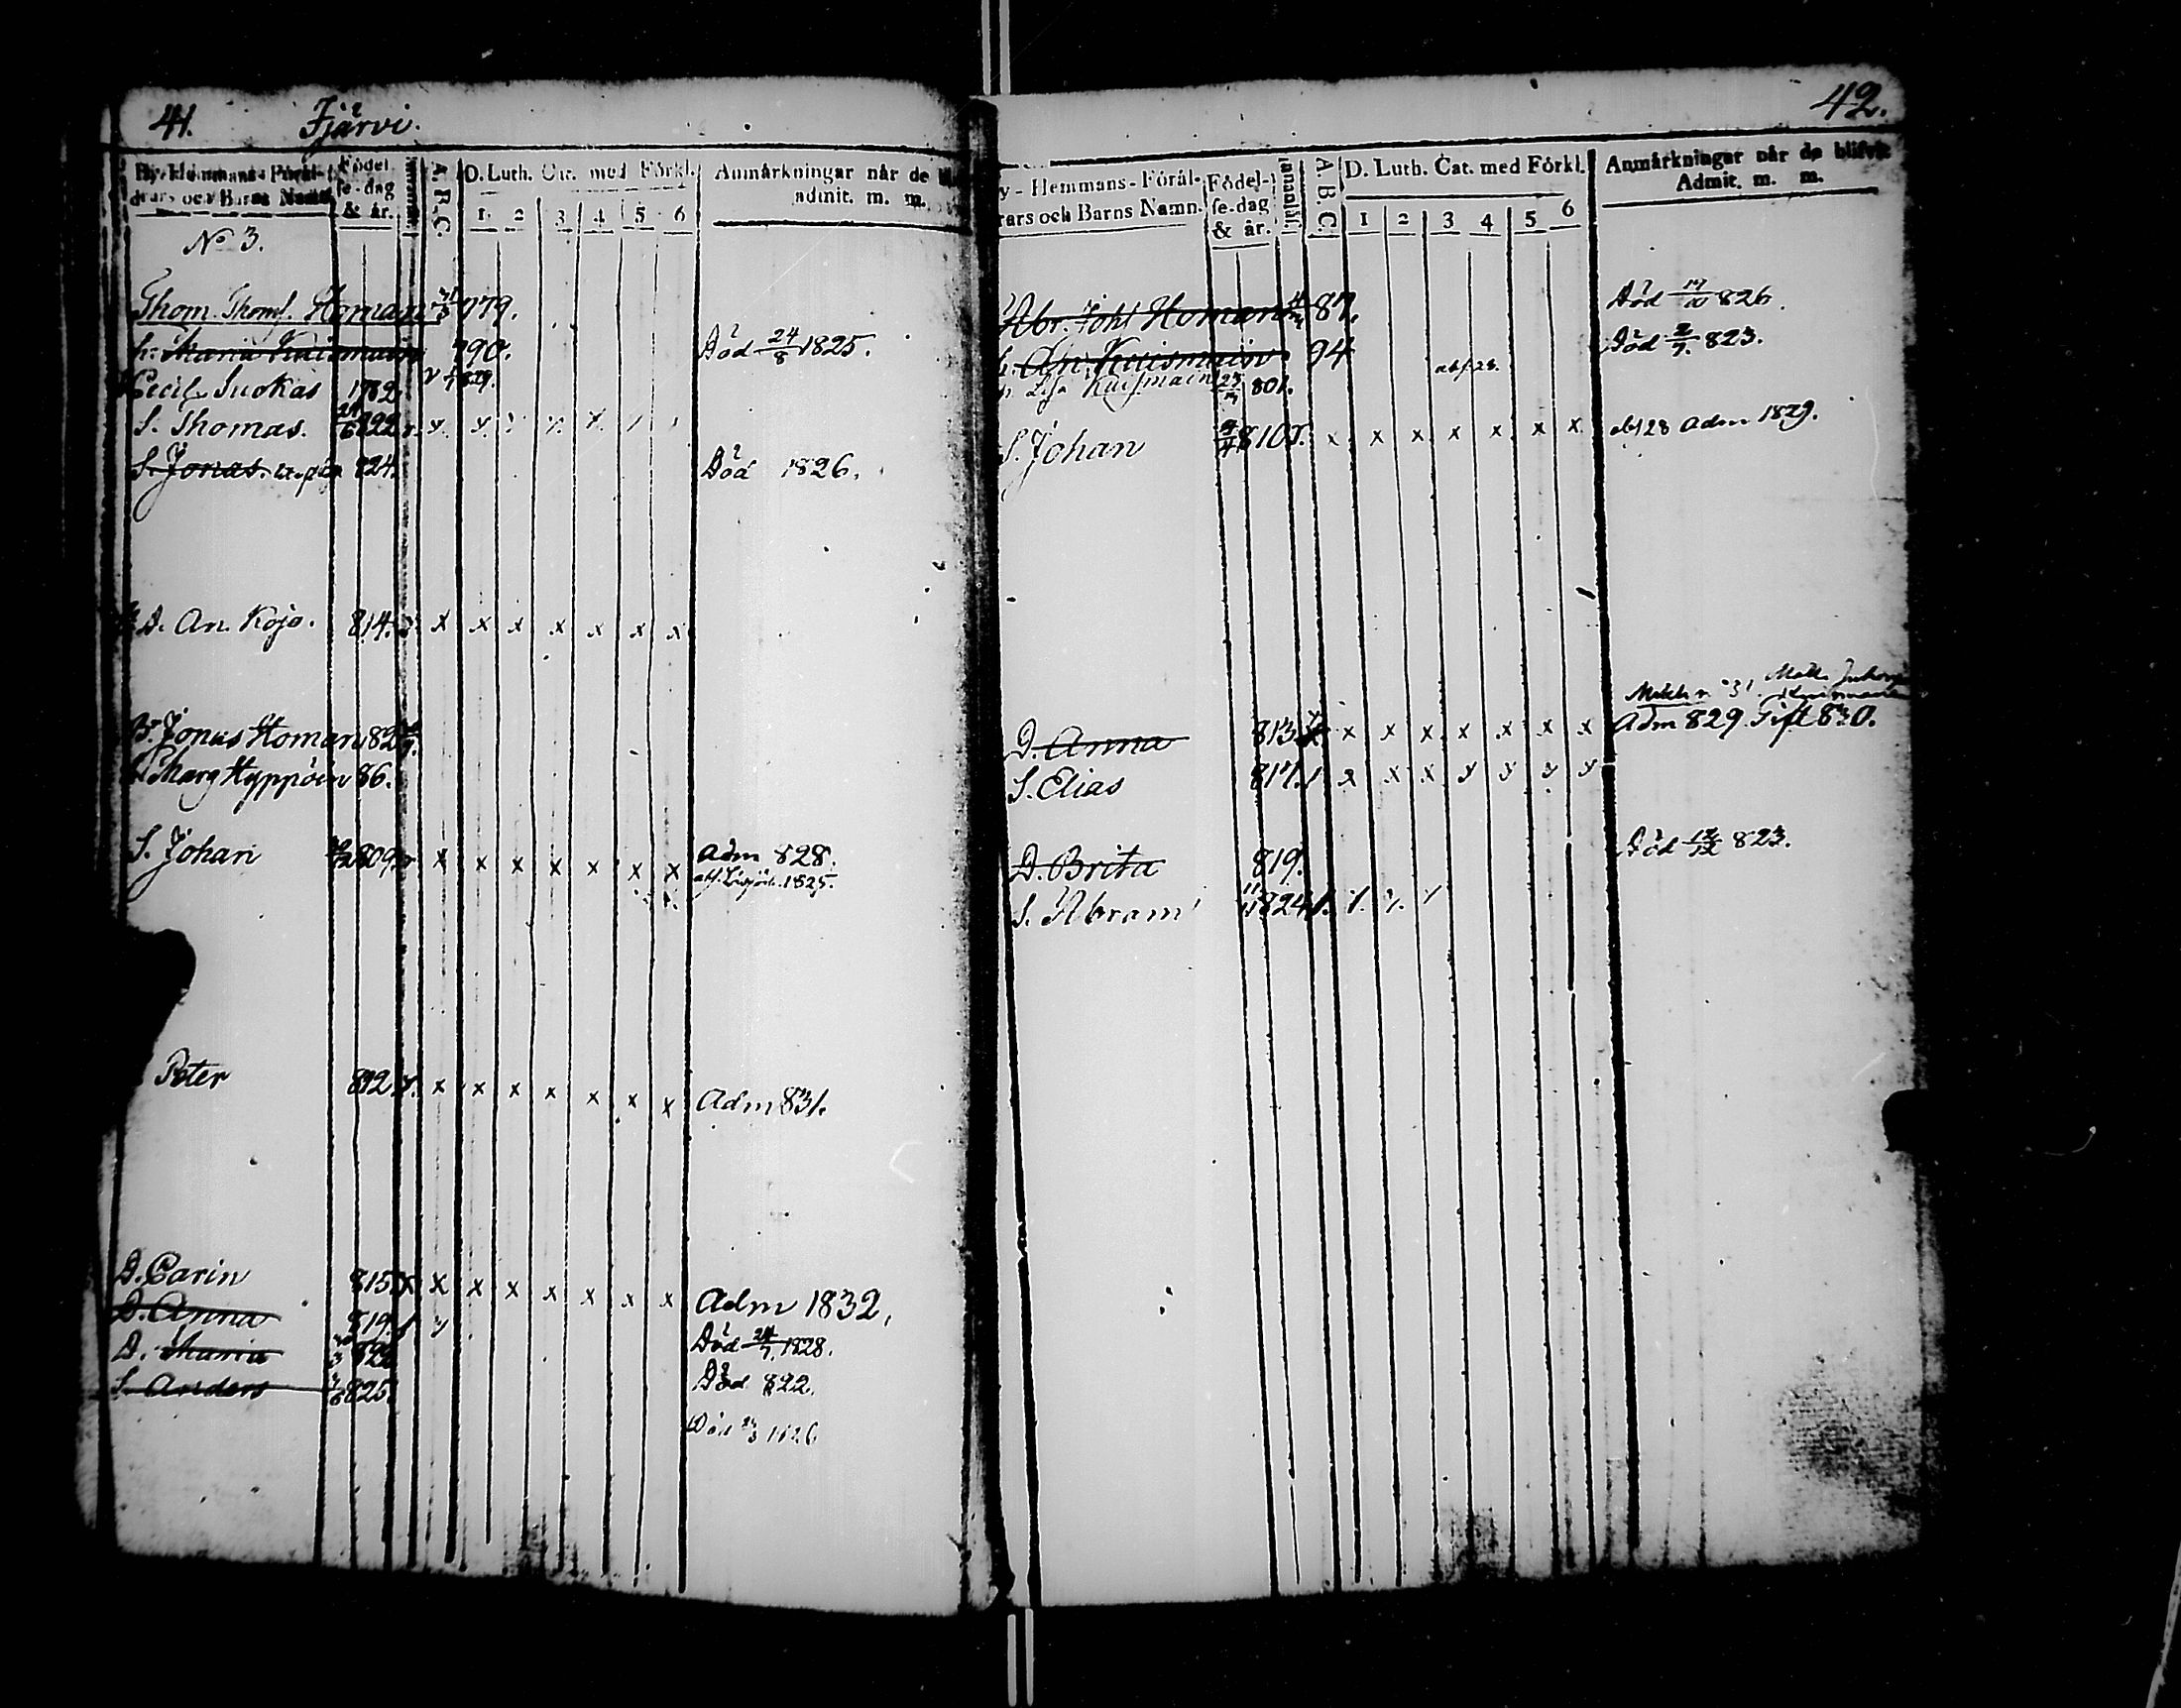 41. Fjärvi.
By- Hemmans- Föräl- Födel-
drars och Barns Namn se-dag & år. A.B.C. D. Luth. Cat. med Förkl. 1 2 3 4 5 6 Anmärkningar när de
admit. m. m.
No 3.
Thom. Thoms. Homan 779.
h. Maria 790. Död 24/8 1825.
Cecil. Suokas 1782 1829.
S. Thomas. 822
S. Jonas 824. Död 1826.
D. An. Kojo. 814. x x x x x x x
B. Jonas Homan 82
h. Marg Hyppöin 86.
S. Johan 809 x x x x x x x Adm 828.
1825.
Peter 812 x x x x x x x Adm 831.
D. Carin 815 x x x x x x x x Adm 1832.
D. Anna 819. Död 24/7 1828.
D. Maria 822 Död 822.
S. Anders 825. Död 1826
42.
y- Hemmans- Föräl- Födel-
rars och Barns Namn. se-dag & år. A.B.C. D. Luth. Cat. med Förkl. 1 2 3 4 5 6 Anmärkningar när de blifvit
Admit. m. m.
Abr. Johs Homan 87. Död 17/10 826.
h. An. Kuismain 94 Död 2/7. 823.
h. Lisa Kuismain 801. abs. 28.
S. Johan 810 x x x x x x x abs 28 Adm 1829.
D. Anna 813 x x x x x x x Adm 829. Gift 830.
S. Elias 817. x x x
D. Brita 819. Död 823.
S. Abram 824